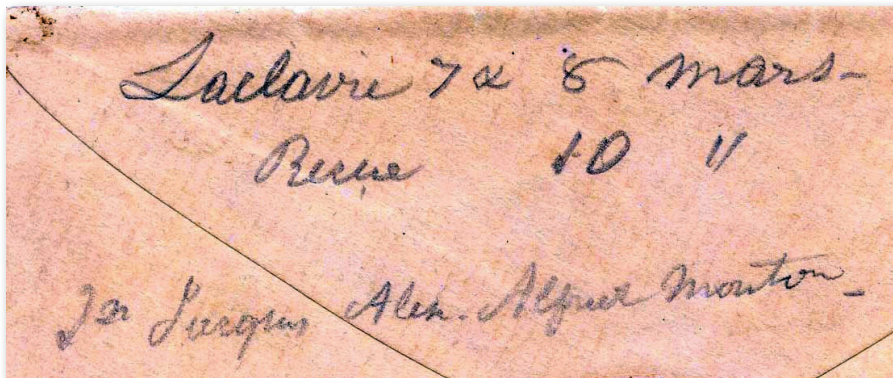 Laclavie 7 & 8 mars-
Recue 10 "
Jn Jacques Alex. Alfred Mouton-